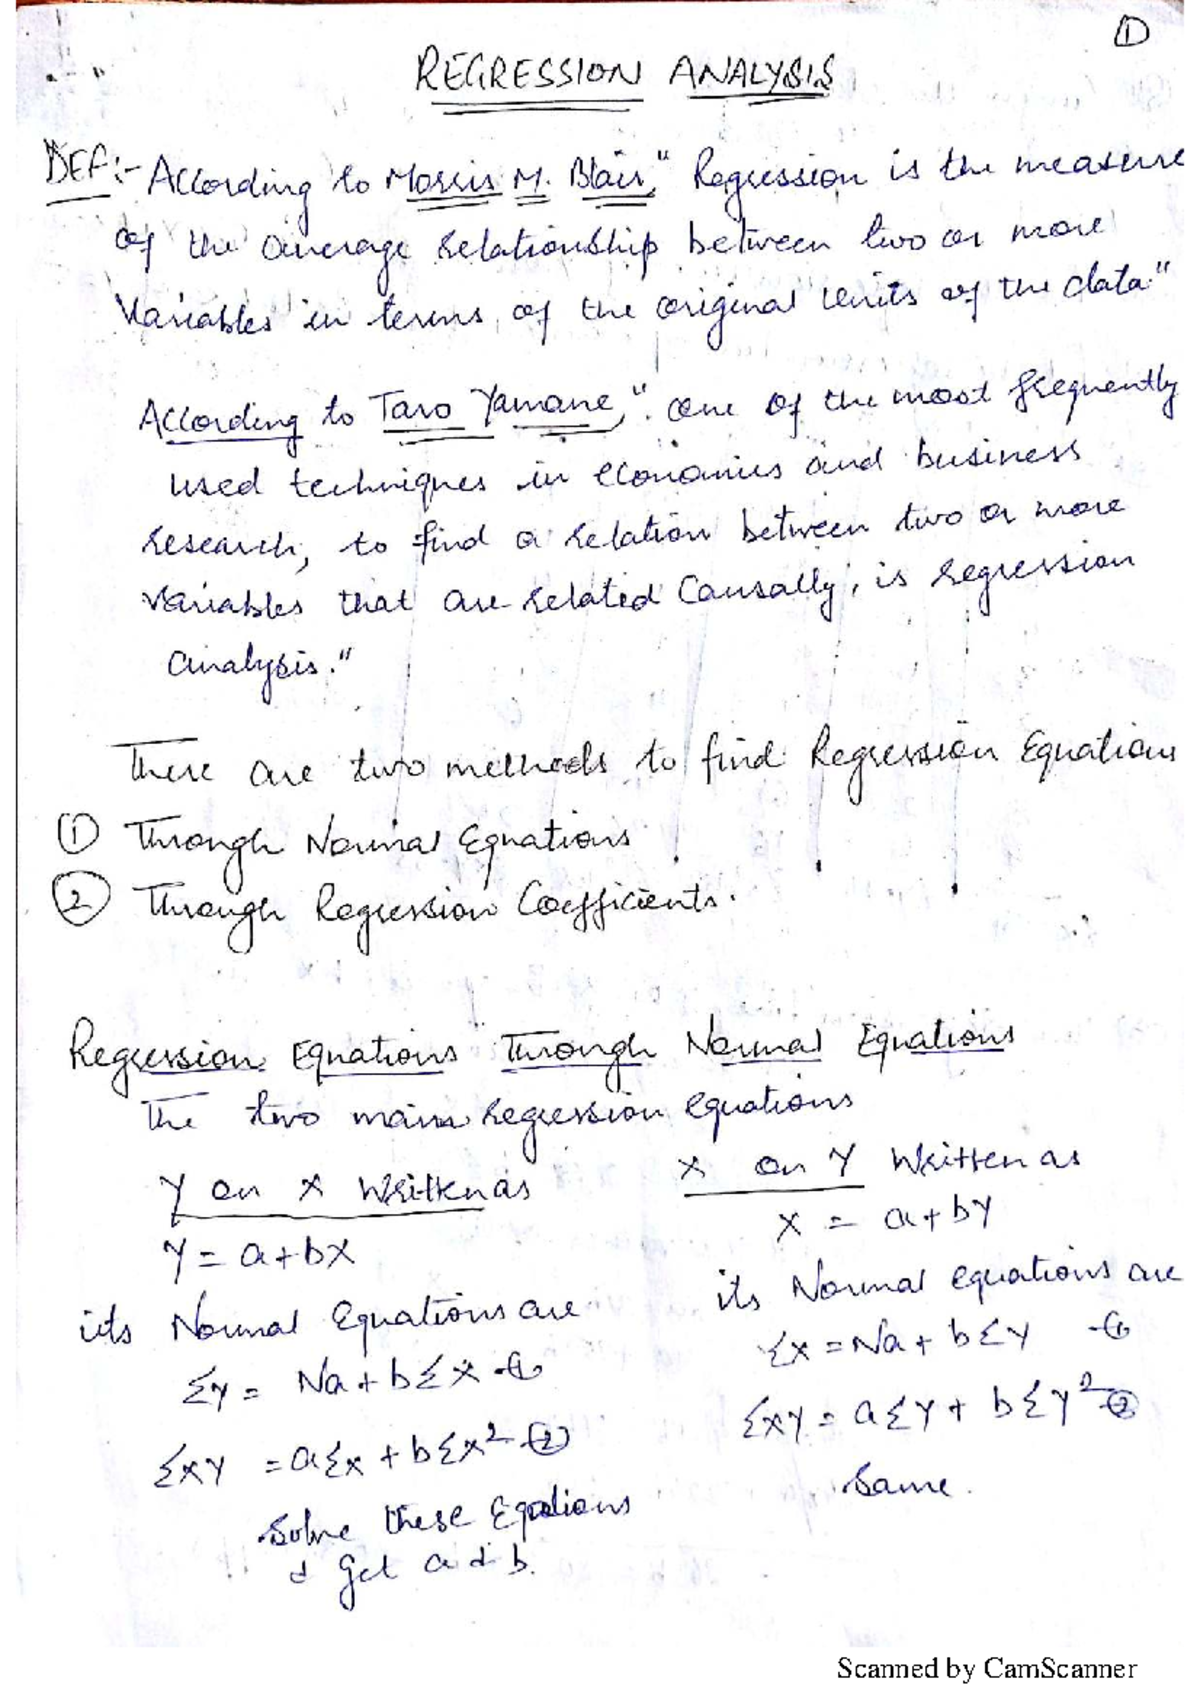 ①
REGRESSION ANALYSIS
DEF:- According to Morris M. Blair, "Regression is the measure
of the average relationship between two or more
Variables in terms of the original units of the data."
According to Taro Yamane, "one of the most frequently
used techniques in economics and business
research, to find a relation between two or more
variables that are related Causally, is regression
analysis."
There are two methods to find Regression Equations
① Through Normal Equations
② Through Regression Coefficients.
Regression Equations Through Normal Equations
The two main regression equations
Y on X Written as
Y = a + bX
its Normal Equations are
ΣY = Na + bΣX -①
ΣXY = aΣX + bΣX² -②
Solve these Equations
& get a & b.
X on Y Written as
X = a + bY
its Normal equations are
ΣX = Na + bΣY -①
ΣXY = aΣY + bΣY² -②
Same.
Scanned by CamScanner